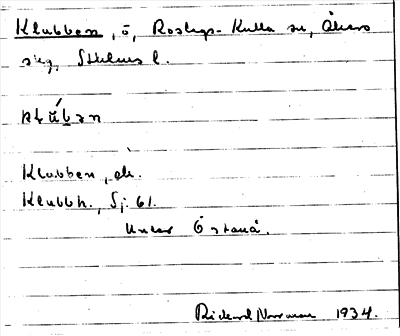 Klubben, ö, Roslags-Kulla sn, Åkers
skg, Sthlms l.
klúban
Klubben, ek.
Klubbh., Sj. 61.
Under Östanå.
Rickard Norrman 1934.